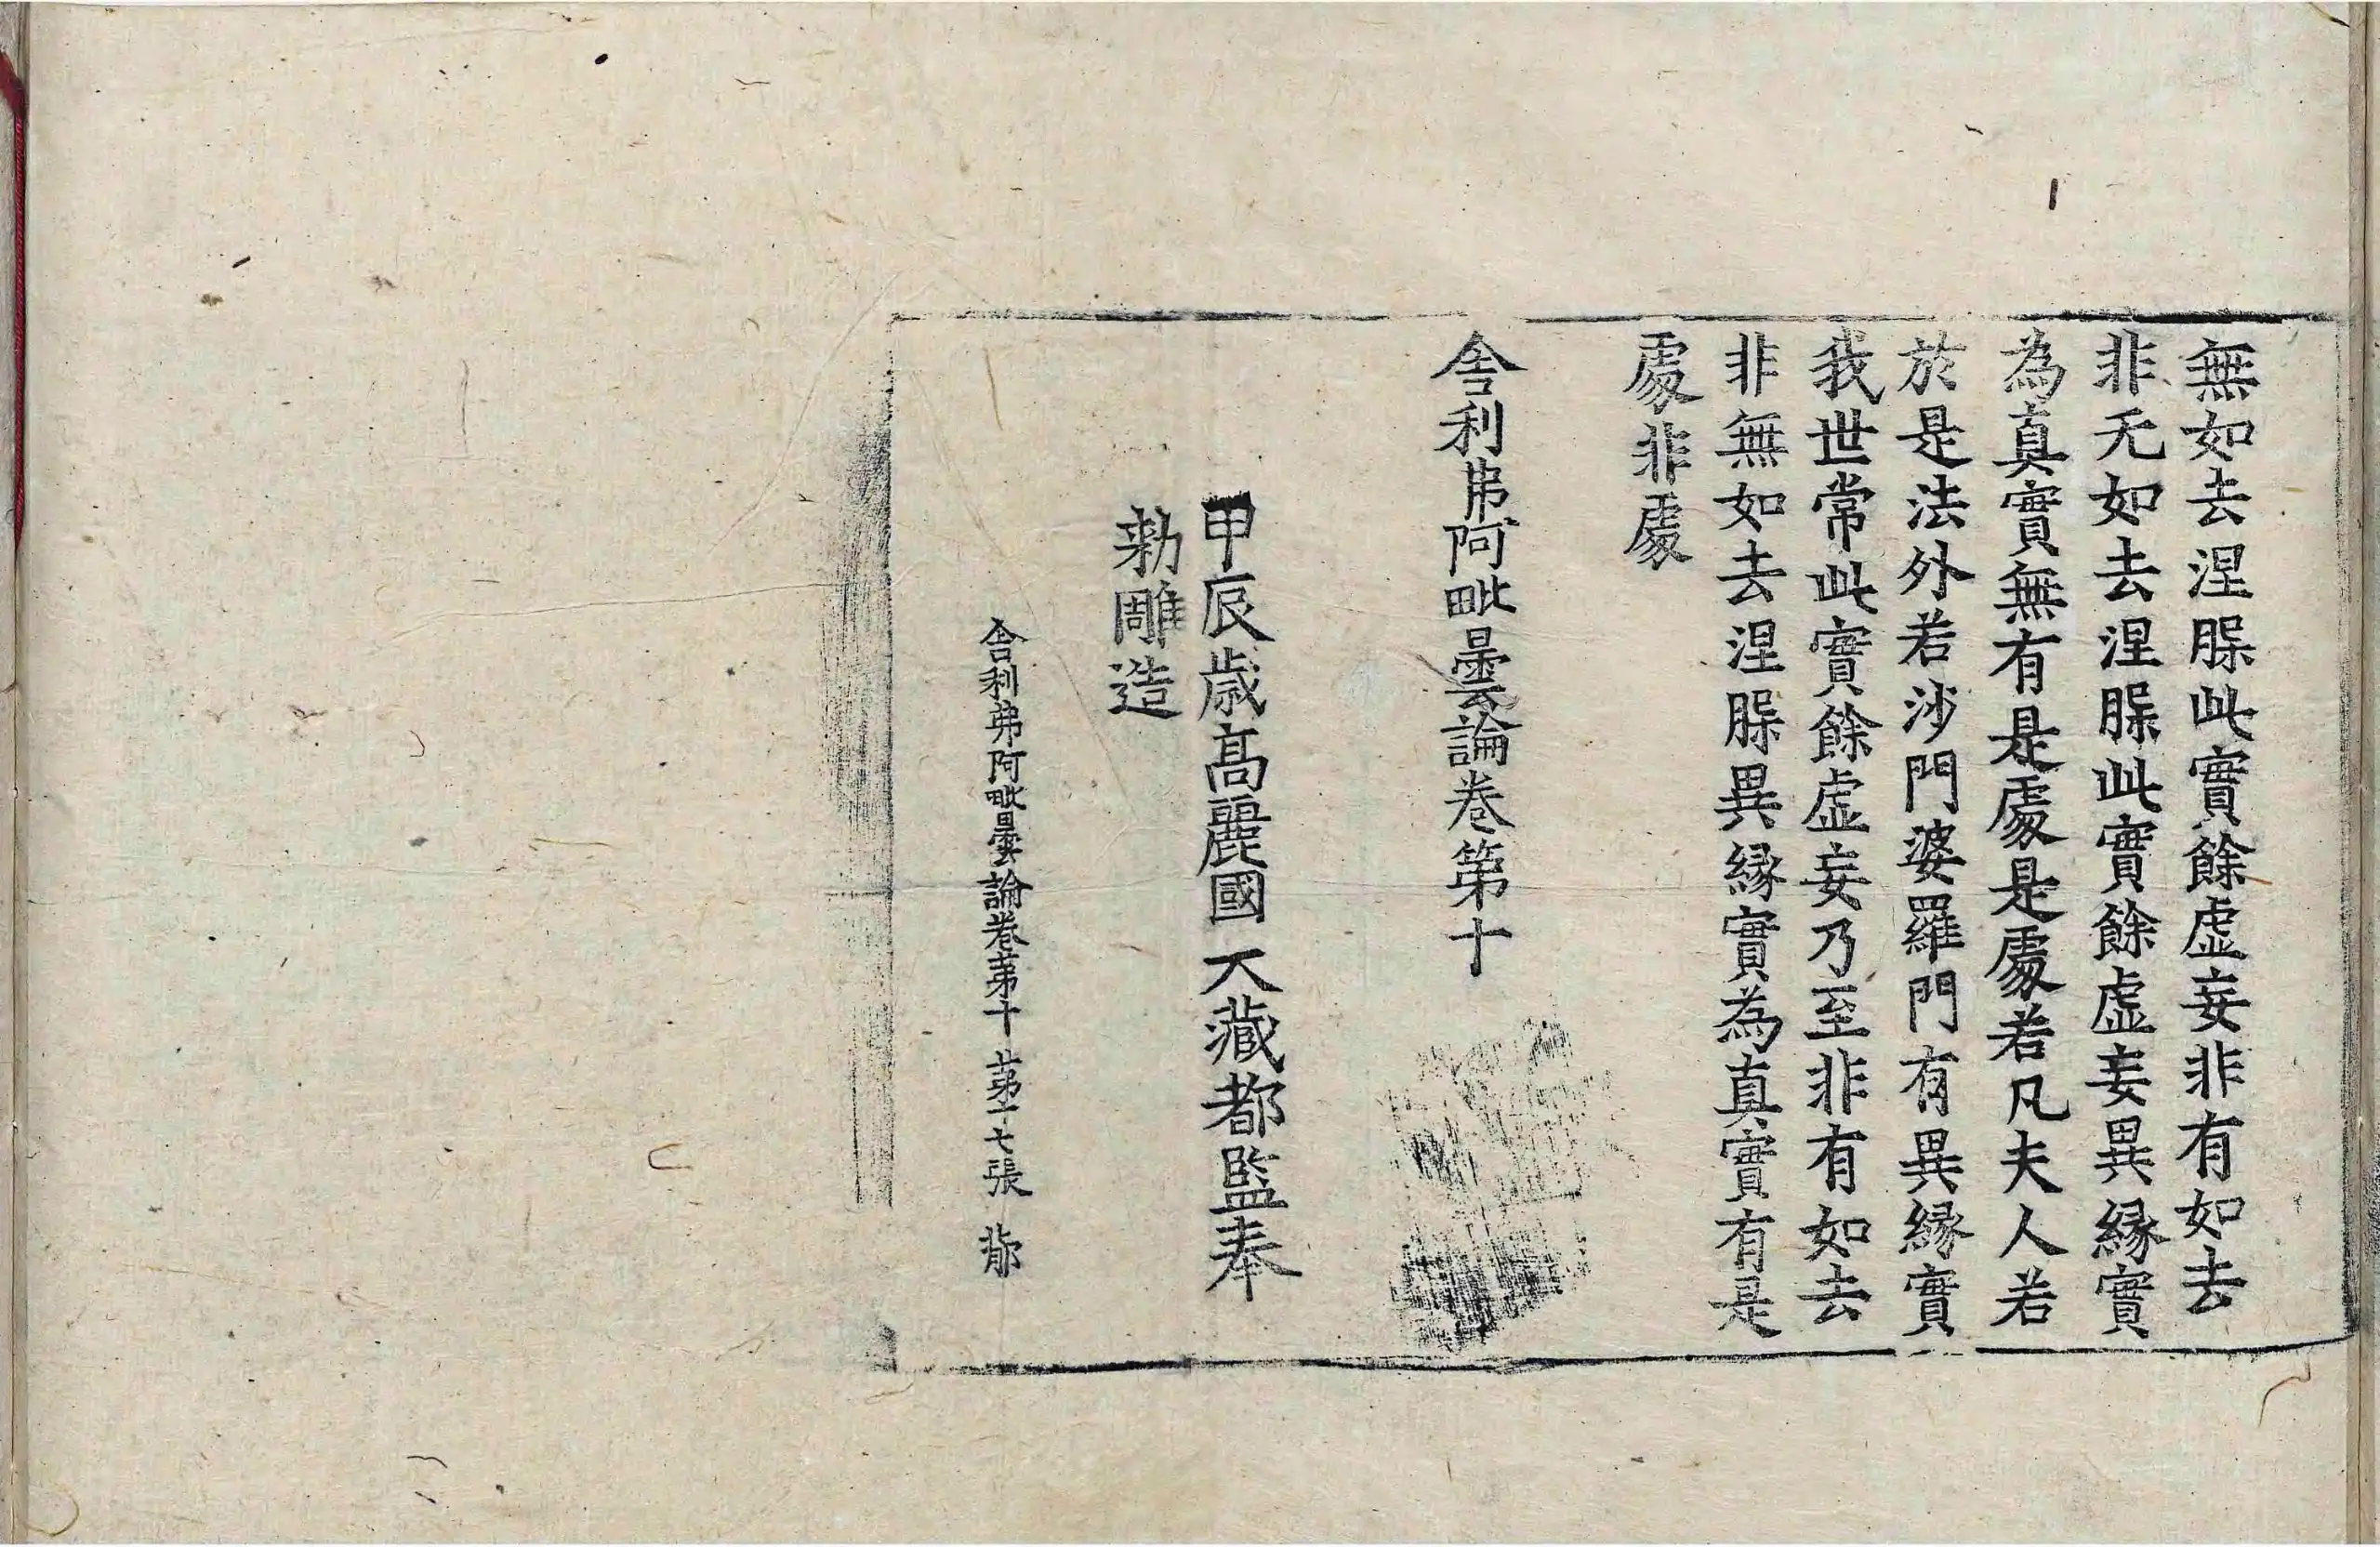 無如去涅脲此實餘虛妄非有如去
非无如去涅脲此實餘虛妄異縁實
為真實無有是處是處若凡夫人若
於是法外若沙門婆羅門有異縁實
我世常此實餘虛妄乃至非有如去
非無如去涅脲異縁實為真實有是
處非處
舎利弗阿毗曇論卷第十
甲辰歳高麗國大藏都監奉
勅雕造
舎利弗阿毗曇論卷第十 第十七張